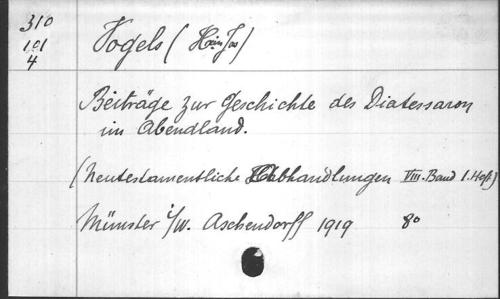 310
101
4
Vogels (Hein Jos)
Beiträge zur Geschichte des Diatessaron
im Abendland.
(Neutestamentliche Abhandlungen VIII. Band 1. Heft)
Münster i/W. Aschendorff 1919 8°